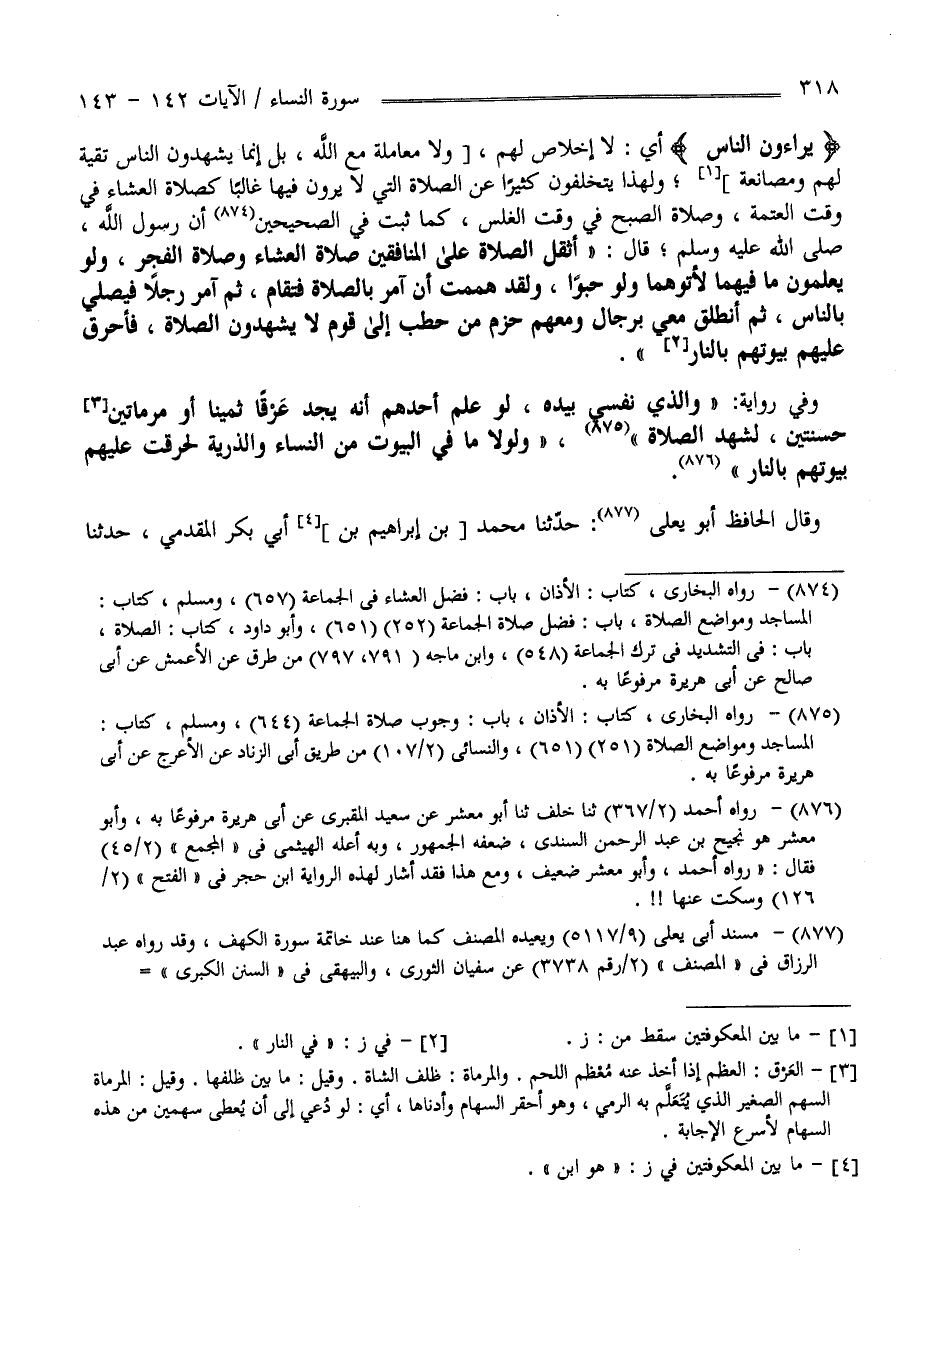 ٣١٨ سورة النساء / الآيات ١٤٢ - ١٤٣
﴿ يراءون الناس ﴾ أي : لا إخلاص لهم ، [ ولا معاملة مع اللَّه ، بل إنما يشهدون الناس تقية
لهم ومصانعة ][١] ؛ ولهذا يتخلفون كثيرًا عن الصلاة التي لا يرون فيها غالبًا كصلاة العشاء في
وقت العتمة ، وصلاة الصبح في وقت الغلس ، كما ثبت في الصحيحين(٨٧٤) أن رسول اللَّه ،
صلى الله عليه وسلم ؛ قال : « أثقل الصلاة على المنافقين صلاة العشاء وصلاة الفجر ، ولو
يعلمون ما فيهما لأتوهما ولو حبوًا ، ولقد هممت أن آمر بالصلاة فتقام ، ثم آمر رجلًا فيصلي
بالناس ، ثم أنطلق معي برجال ومعهم حزم من حطب إلى قوم لا يشهدون الصلاة ، فأحرق
عليهم بيوتهم بالنار[٢] » .
وفي رواية: « والذي نفسي بيده ، لو علم أحدهم أنه يجد عَرْقًا ثمينا أو مرماتين[٣]
حسنتين ، لشهد الصلاة »(٨٧٥) ، « ولولا ما في البيوت من النساء والذرية لحرقت عليهم
بيوتهم بالنار » (٨٧٦).
وقال الحافظ أبو يعلى (٨٧٧): حدّثنا محمد [ بن إبراهيم بن ][٤] أبي بكر المقدمي ، حدثنا
(٨٧٤) - رواه البخارى ، كتاب : الأذان ، باب : فضل العشاء فى الجماعة (٦٥٧) ، ومسلم ، كتاب :
المساجد ومواضع الصلاة ، باب : فضل صلاة الجماعة (٢٥٢) (٦٥١) ، وأبو داود ، كتاب : الصلاة ،
باب : فى التشديد فى ترك الجماعة (٥٤٨) ، وابن ماجه ( ٧٩١، ٧٩٧) من طرق عن الأعمش عن أبى
صالح عن أبى هريرة مرفوعًا به .
(٨٧٥) - رواه البخارى ، كتاب : الأذان ، باب : وجوب صلاة الجماعة (٦٤٤) ، ومسلم ، كتاب :
المساجد ومواضع الصلاة (٢٥١) (٦٥١) ، والنسائى (١٠٧/٢) من طريق أبى الزناد عن الأعرج عن أبى
هريرة مرفوعًا به .
(٨٧٦) - رواه أحمد (٣٦٧/٢) ثنا خلف ثنا أبو معشر عن سعيد المقبرى عن أبى هريرة مرفوعًا به ، وأبو
معشر هو نجيح بن عبد الرحمن السندى ، ضعفه الجمهور ، وبه أعله الهيثمى فى « المجمع » (٤٥/٢)
فقال : « رواه أحمد ، وأبو معشر ضعيف ، ومع هذا فقد أشار لهذه الرواية ابن حجر فى « الفتح » (٢/
١٢٦) وسكت عنها !! .
(٨٧٧) - مسند أبى يعلى (٥١١٧/٩) ويعيده المصنف كما هنا عند خاتمة سورة الكهف ، وقد رواه عبد
الرزاق فى « المصنف » (٢/رقم ٣٧٣٨) عن سفيان الثورى ، والبيهقى فى « السنن الكبرى » =
[١] - ما بين المعكوفتين سقط من : ز . [٢] - في ز : « في النار » .
[٣] - العَرْق : العظم إذا أخذ عنه مُعْظم اللحم . والمرماة : ظلف الشاة . وقيل : ما بين ظلفها . وقيل : المرماة
السهم الصغير الذي يُتَعَلَّم به الرمي ، وهو أحقر السهام وأدناها ، أي : لو دُعي إلى أن يُعطى سهمين من هذه
السهام لأسرع الإجابة .
[٤] - ما بين المعكوفتين في ز : « هو ابن » .